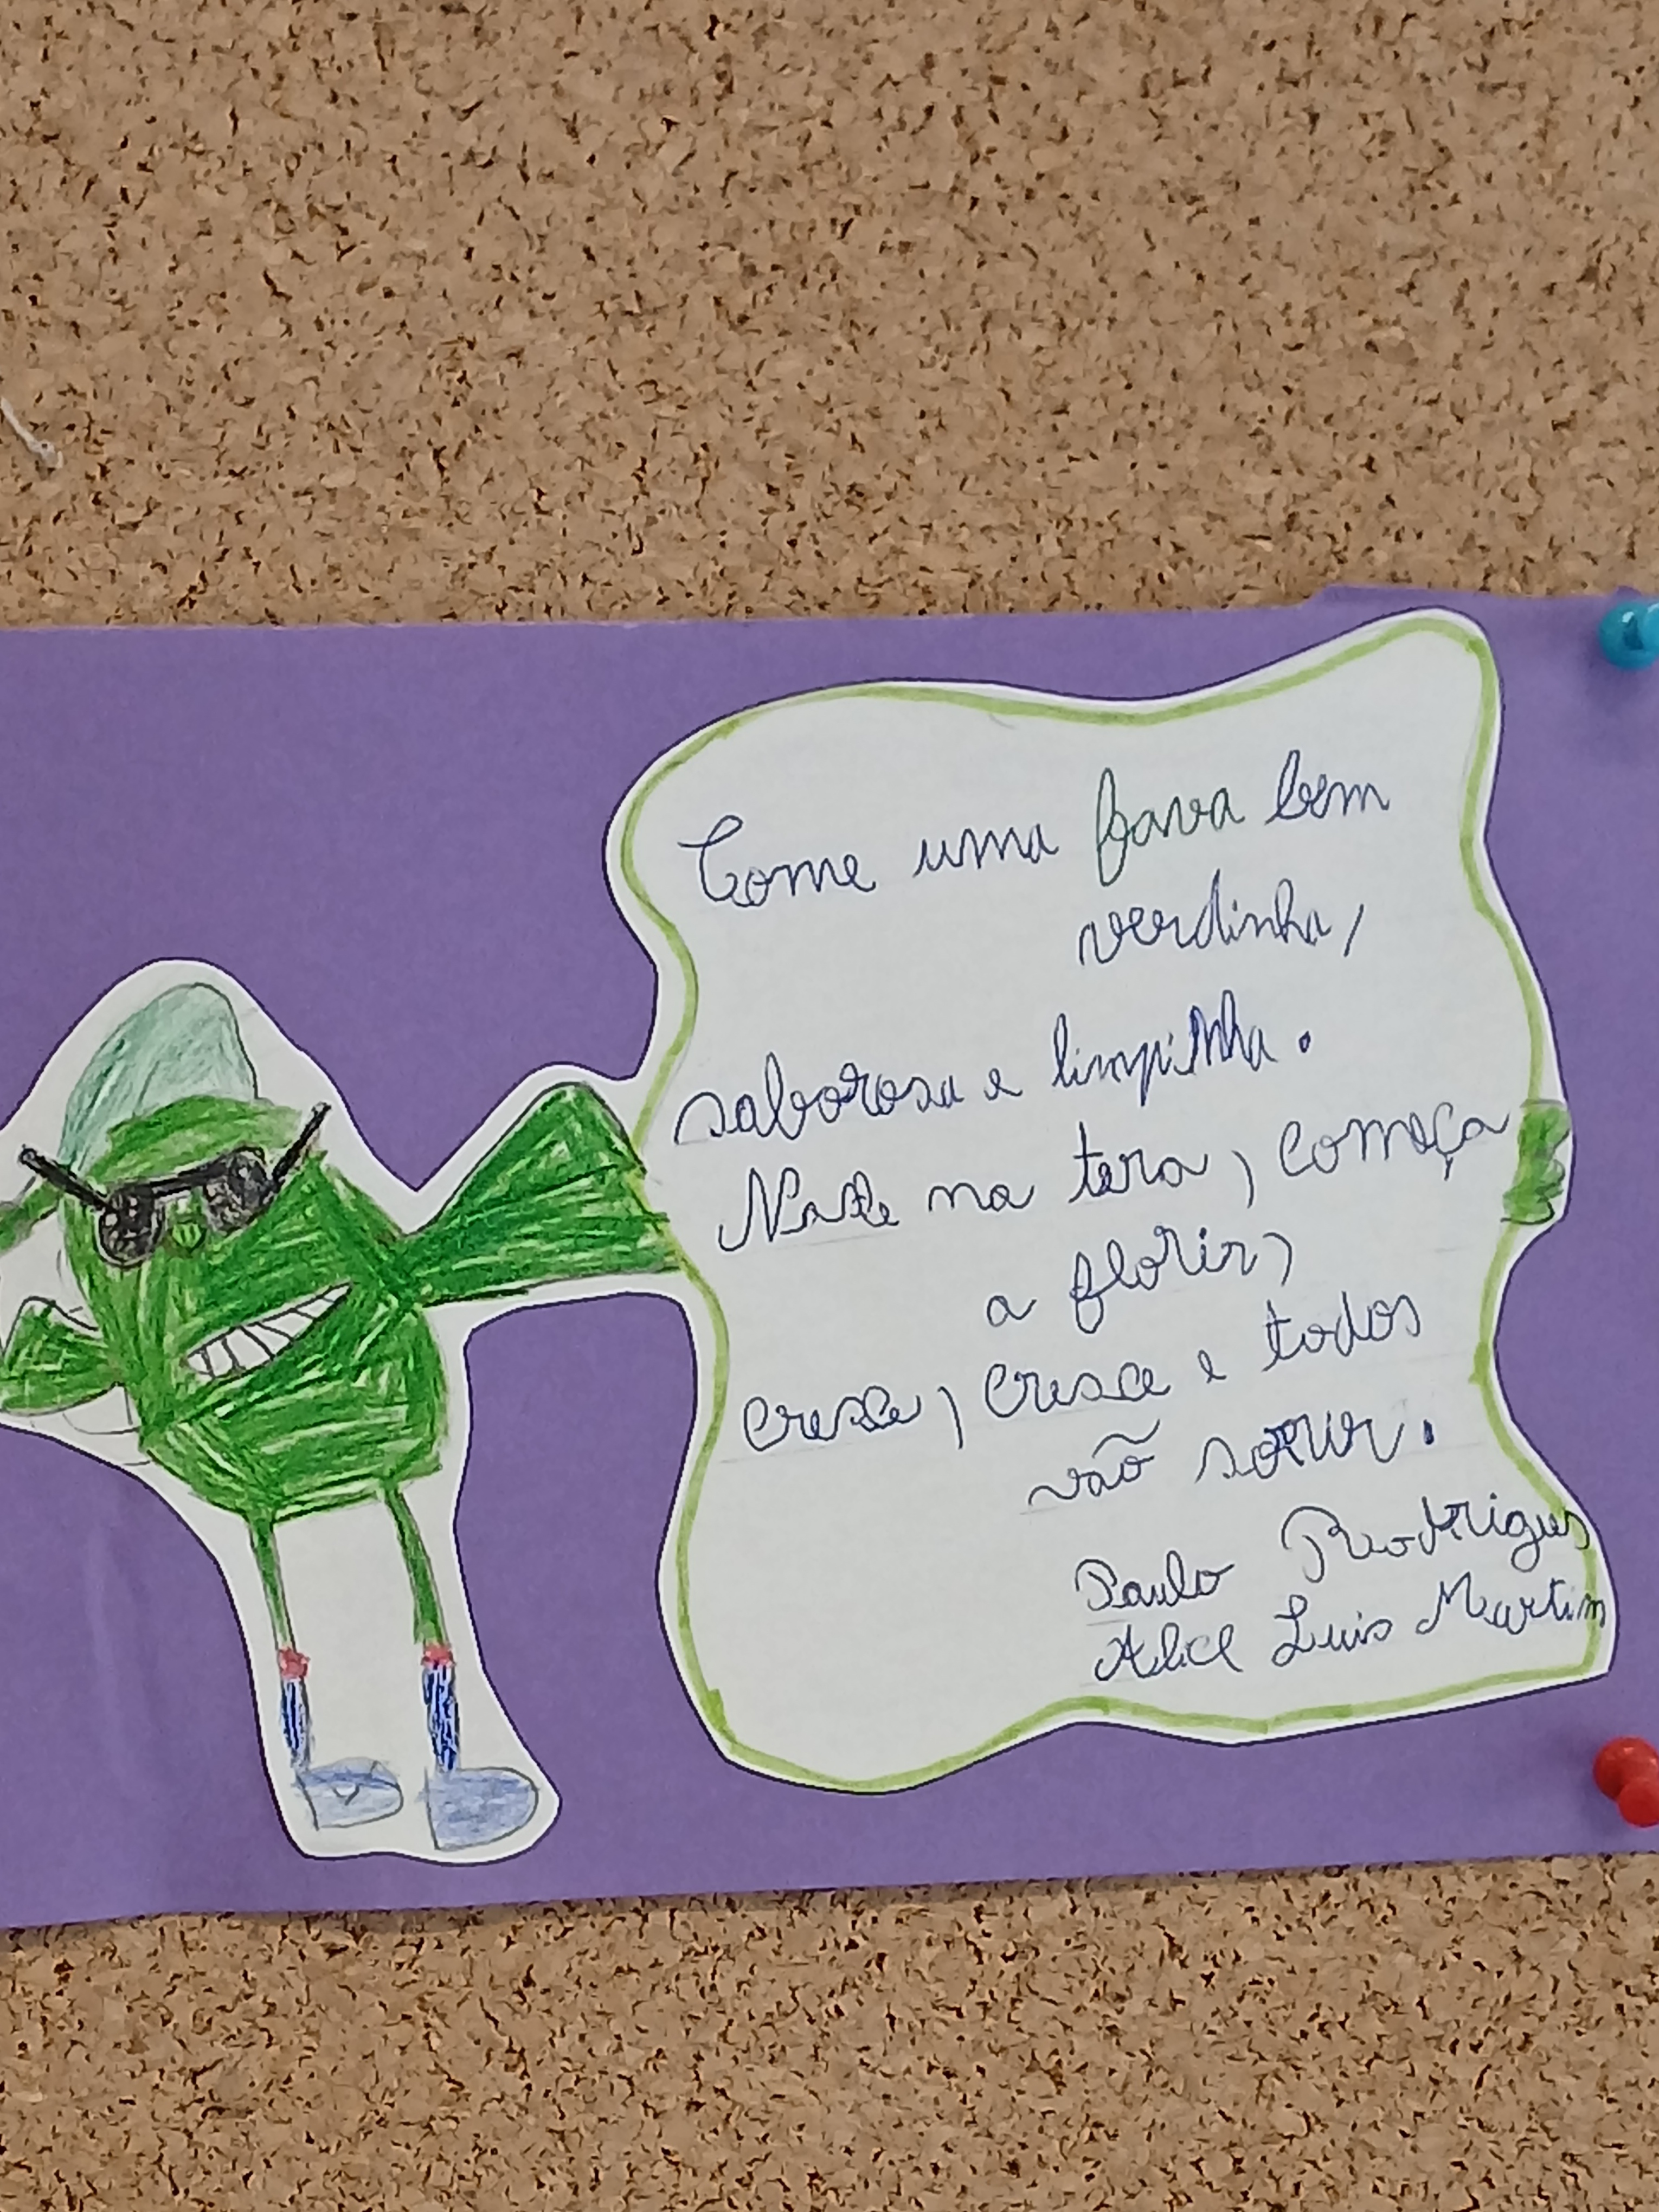 Come uma fava bem
verdinha,
saborosa e limpinha.
Nasce na tera, começa
a florir,
cresce, cresce e todos
vão sorrir.
Paulo Rodrigues
Alice Luis Martim